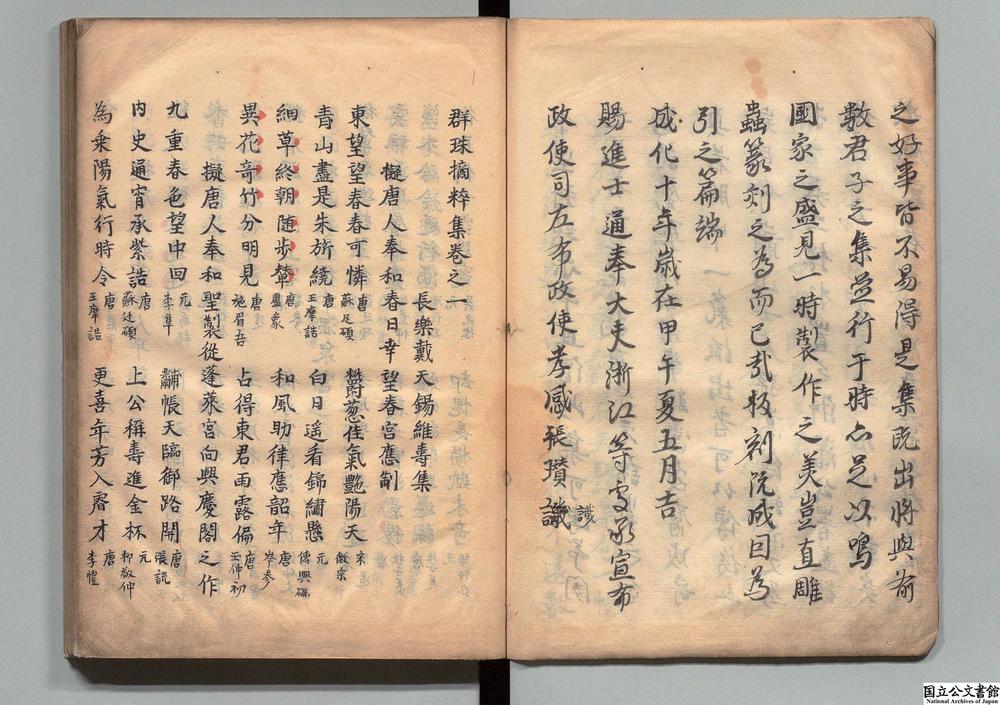 之好事皆不易得是集既出將與前
數君子之集並行于時亦足以鳴
國家之盛見一時製作之美豈直雕
蟲篆刻之為而已哉板刻既成因為
引之篇端
成化十年歲在甲午夏五月吉
賜進士通奉大夫浙江等處承宣布
政使司左布政使孝感張瓚識
識
群珠摘粹集卷之一
長樂戴天錫維壽集
擬唐人奉和春日幸望春宮應制
東望望春春可憐 唐蘇廷碩 鬱葱佳氣艷陽天 宋徽宗
青山盡是朱旂繞 唐王摩詰 白日遥看錦繡懸 元傅與礪
細草終朝随步輦 唐盧象 和風助律應韶年 唐
異花竒竹分明見 唐施眉吾 占得東君雨露偏 唐王仲初
擬唐人奉和聖製從蓬萊宮向興慶閣之作
九重春色望中回 元李隼 黼帳天臨御路開 唐張説
内史通宵承紫誥 唐蘇廷碩 上公稱壽進金杯 元柳敬仲
為乗陽氣行時令 唐王摩詰 更喜年芳入睿才 唐李憕
国立公文書館
National Archives of Japan